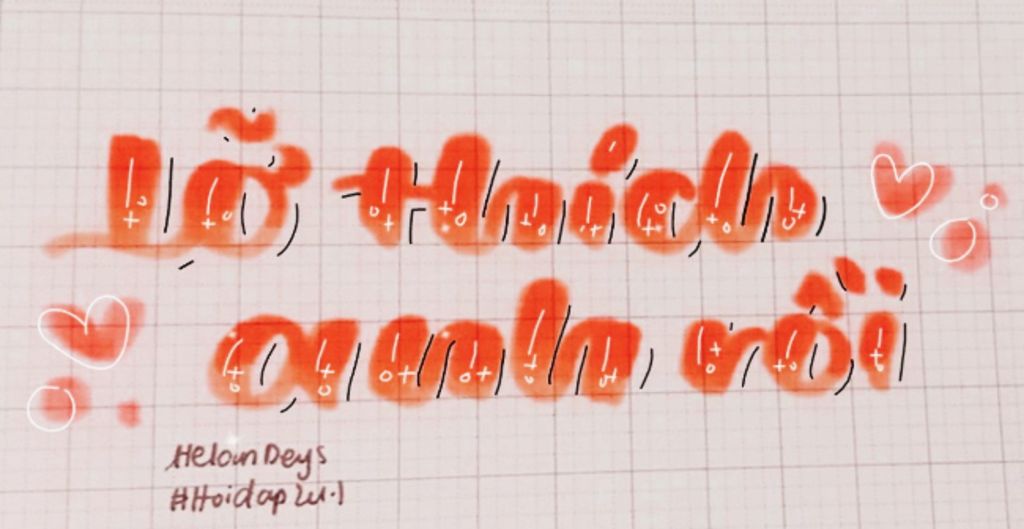 Lỡ thích
anh rồi
HeloinDeys
#Hoidap247